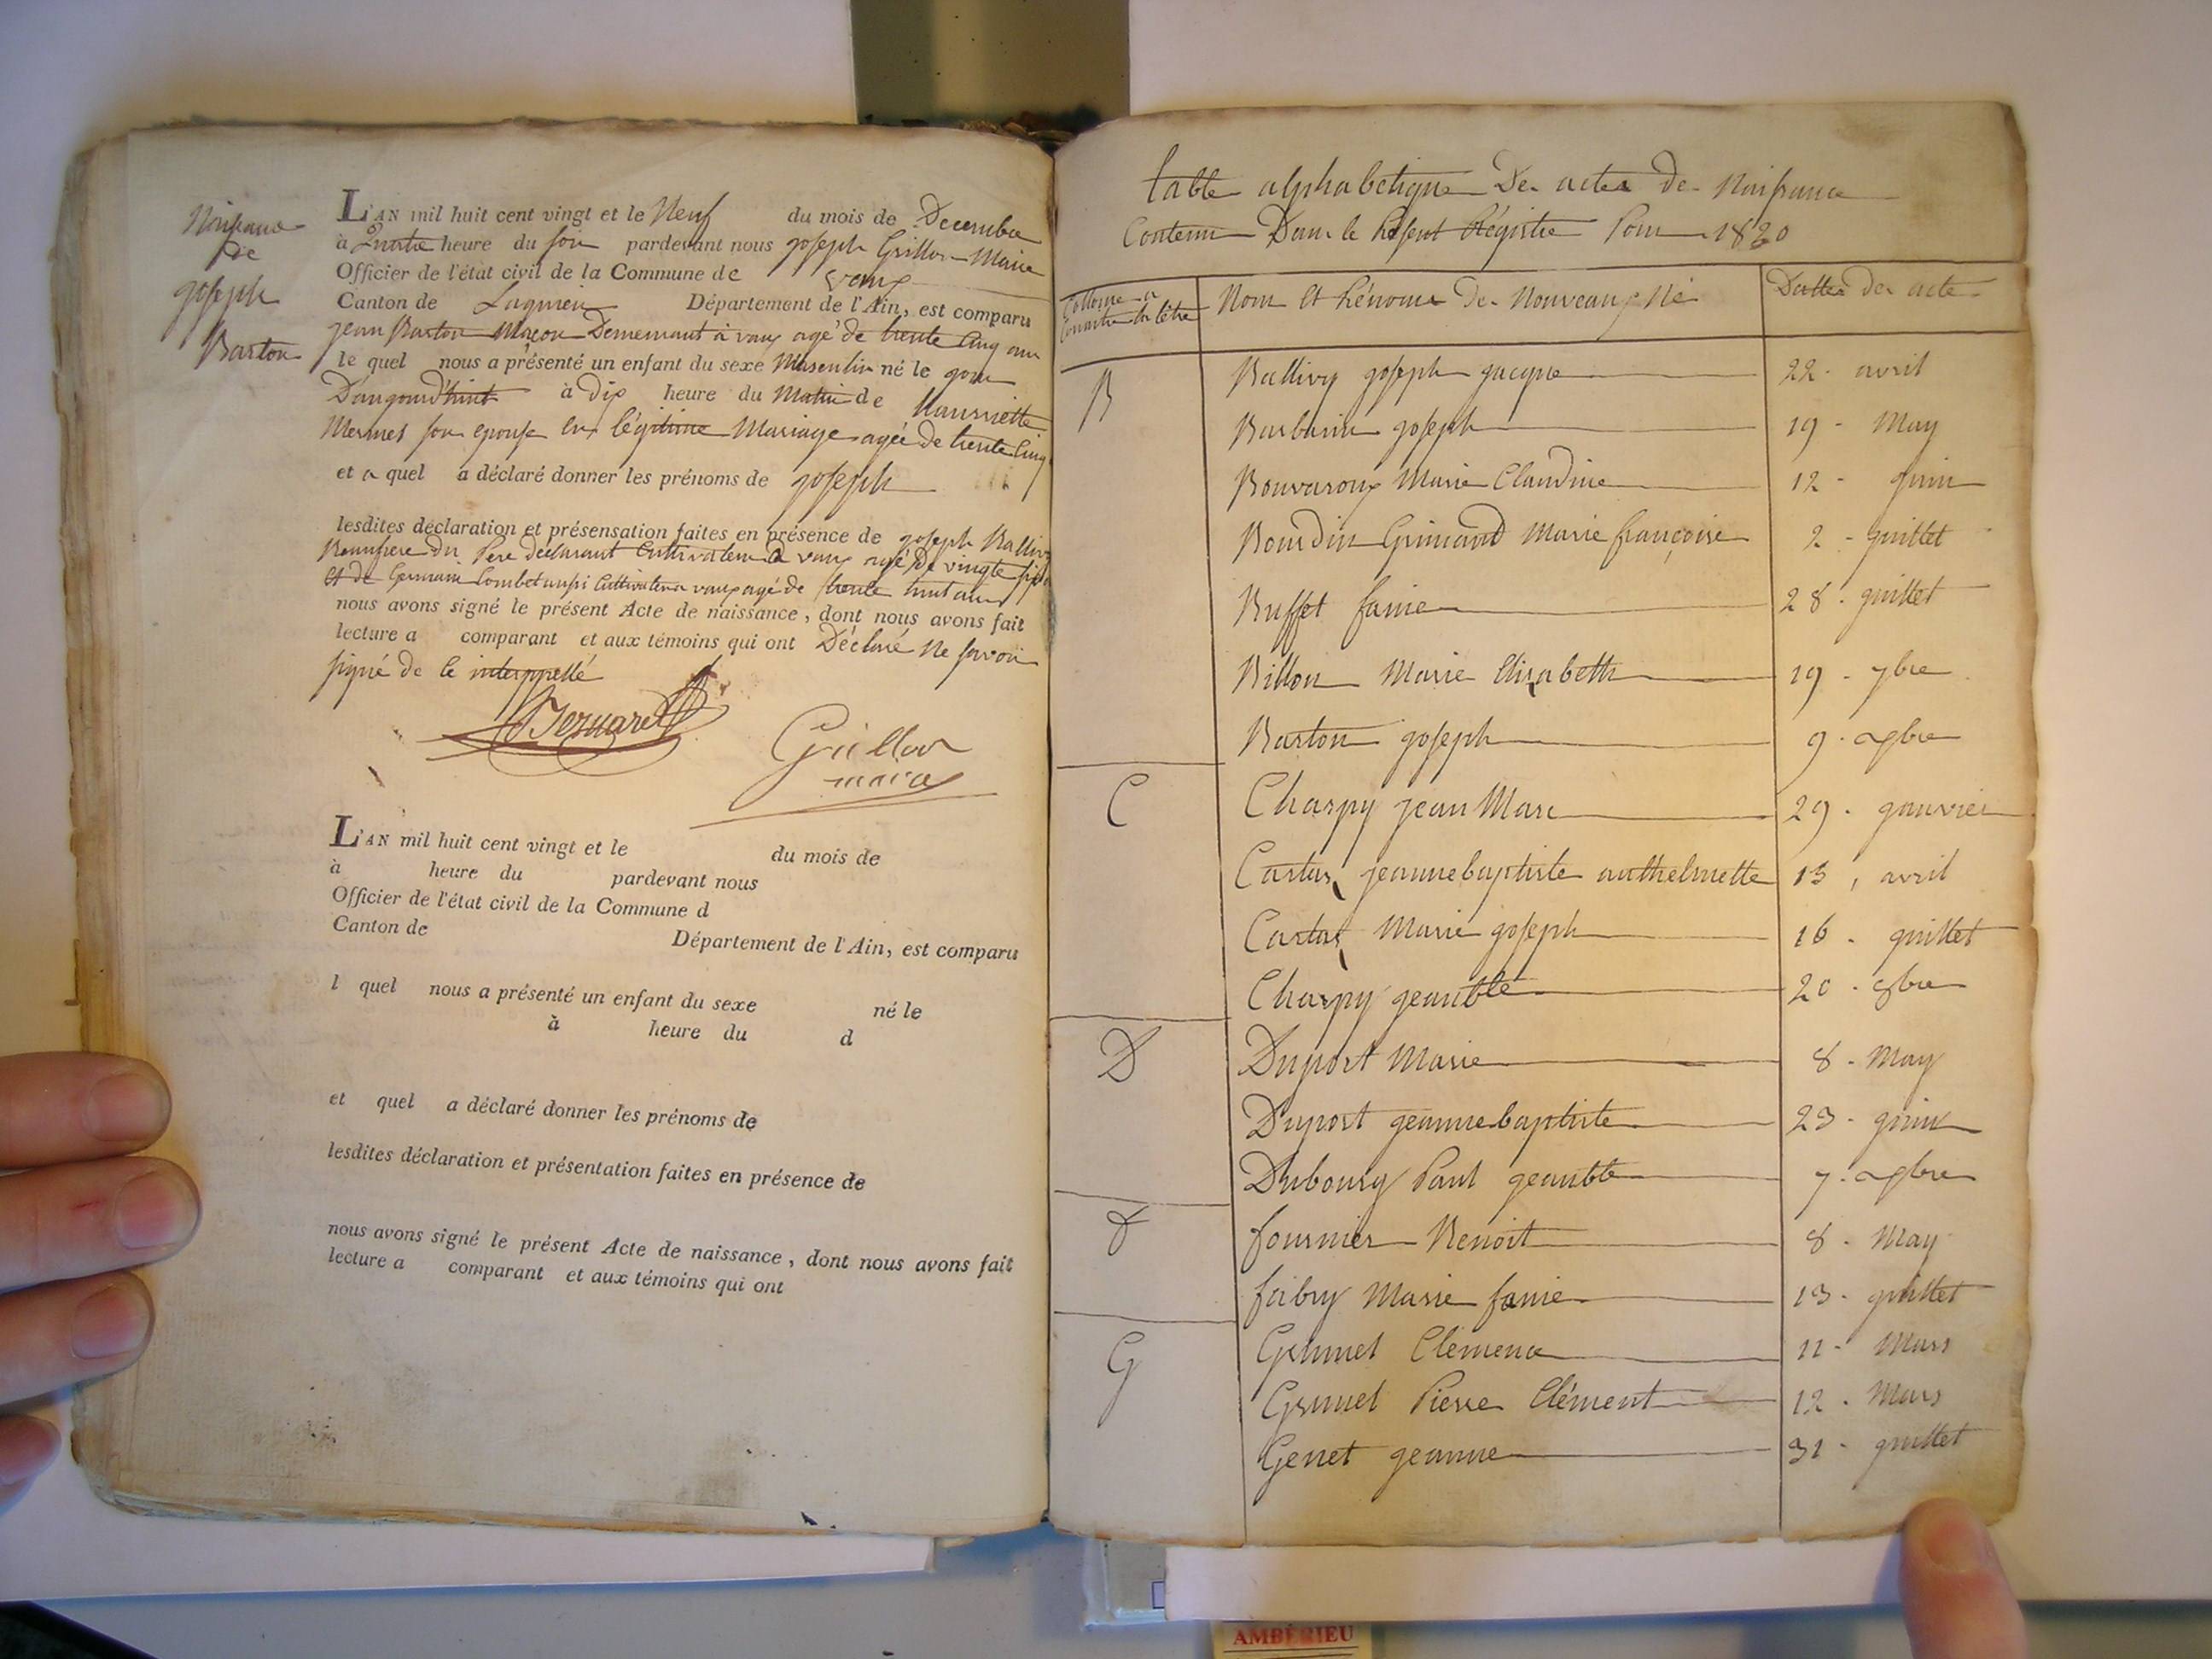 Naissance
de
joseph
Barton
L'AN mil huit cent vingt et le Neuf du mois de Decembre
à Quatre heure du soir pardevant nous joseph Grillon Maire
Officier de l'état civil de la Commune de vaux
Canton de Lagnieu Département de l'Ain, est comparu
jean Barton Maçon Demeurant à vaux agé de trente Cinq ans
le quel nous a présenté un enfant du sexe Masculin né le jour
D'aujourd'huit à dix heure du Matin de Hanriette
Mermet son epouse en légitime Mariage agée de trente Cinq
et a quel a déclaré donner les prénoms de joseph
lesdites déclaration et présensation faites en présence de joseph Ballivy
Beaufrere du Pere déclarant Cultivateur a vaux agé de vingte six
et de Germain Combet aussi Cultivateur a vaux agé de trente huit ans
nous avons signé le présent Acte de naissance, dont nous avons fait
lecture a comparant et aux témoins qui ont Déclaré Ne savoir
signé de ce interppellé
Grillon
maire
L'AN mil huit cent vingt et le du mois de
à heure du pardevant nous
Officier de l'état civil de la Commune d
Canton de Département de l'Ain, est comparu
l quel nous a présenté un enfant du sexe né le
à heure du d
et quel a déclaré donner les prénoms de
lesdites déclaration et présentation faites en présence de
nous avons signé le présent Acte de naissance, dont nous avons fait
lecture a comparant et aux témoins qui ont
table alphabetique De actes de Naissance
Contenu Dans le Présent Régistre Pour 1820
Nom et Prénoms de Nouveaux Né Dattes des actes
B Ballivy joseph jacque 22 - avril
Barbarin joseph 19 - May
Bouvaroux Marie Claudine 12 - juin
Bourdin Grimand Marie françoise 2 - juillet
Buffet fanie 28 - juillet
Billon Marie Elisabeth 19 - 7bre
Barton joseph 9 - Xbre
C Charpy jean Marc 29 - janvier
Castas jeanne baptiste anthelmette 13, avril
Castas Marie joseph 16 - juillet
Charpy jeanbte 20 - 9bre
D Duport Marie 8 - May
Duport jeanne baptiste 23 - juin
Dubourg Paul jeanbte 7 - Xbre
F fournier Benoit 8 - May
fabry Marie fanie 13 - juillet
G Grumel Clémence 11 - Mars
Grumel Pierre Clément 12 - Mars
Genet jeanne 31 - juillet
AMBÉRIEU